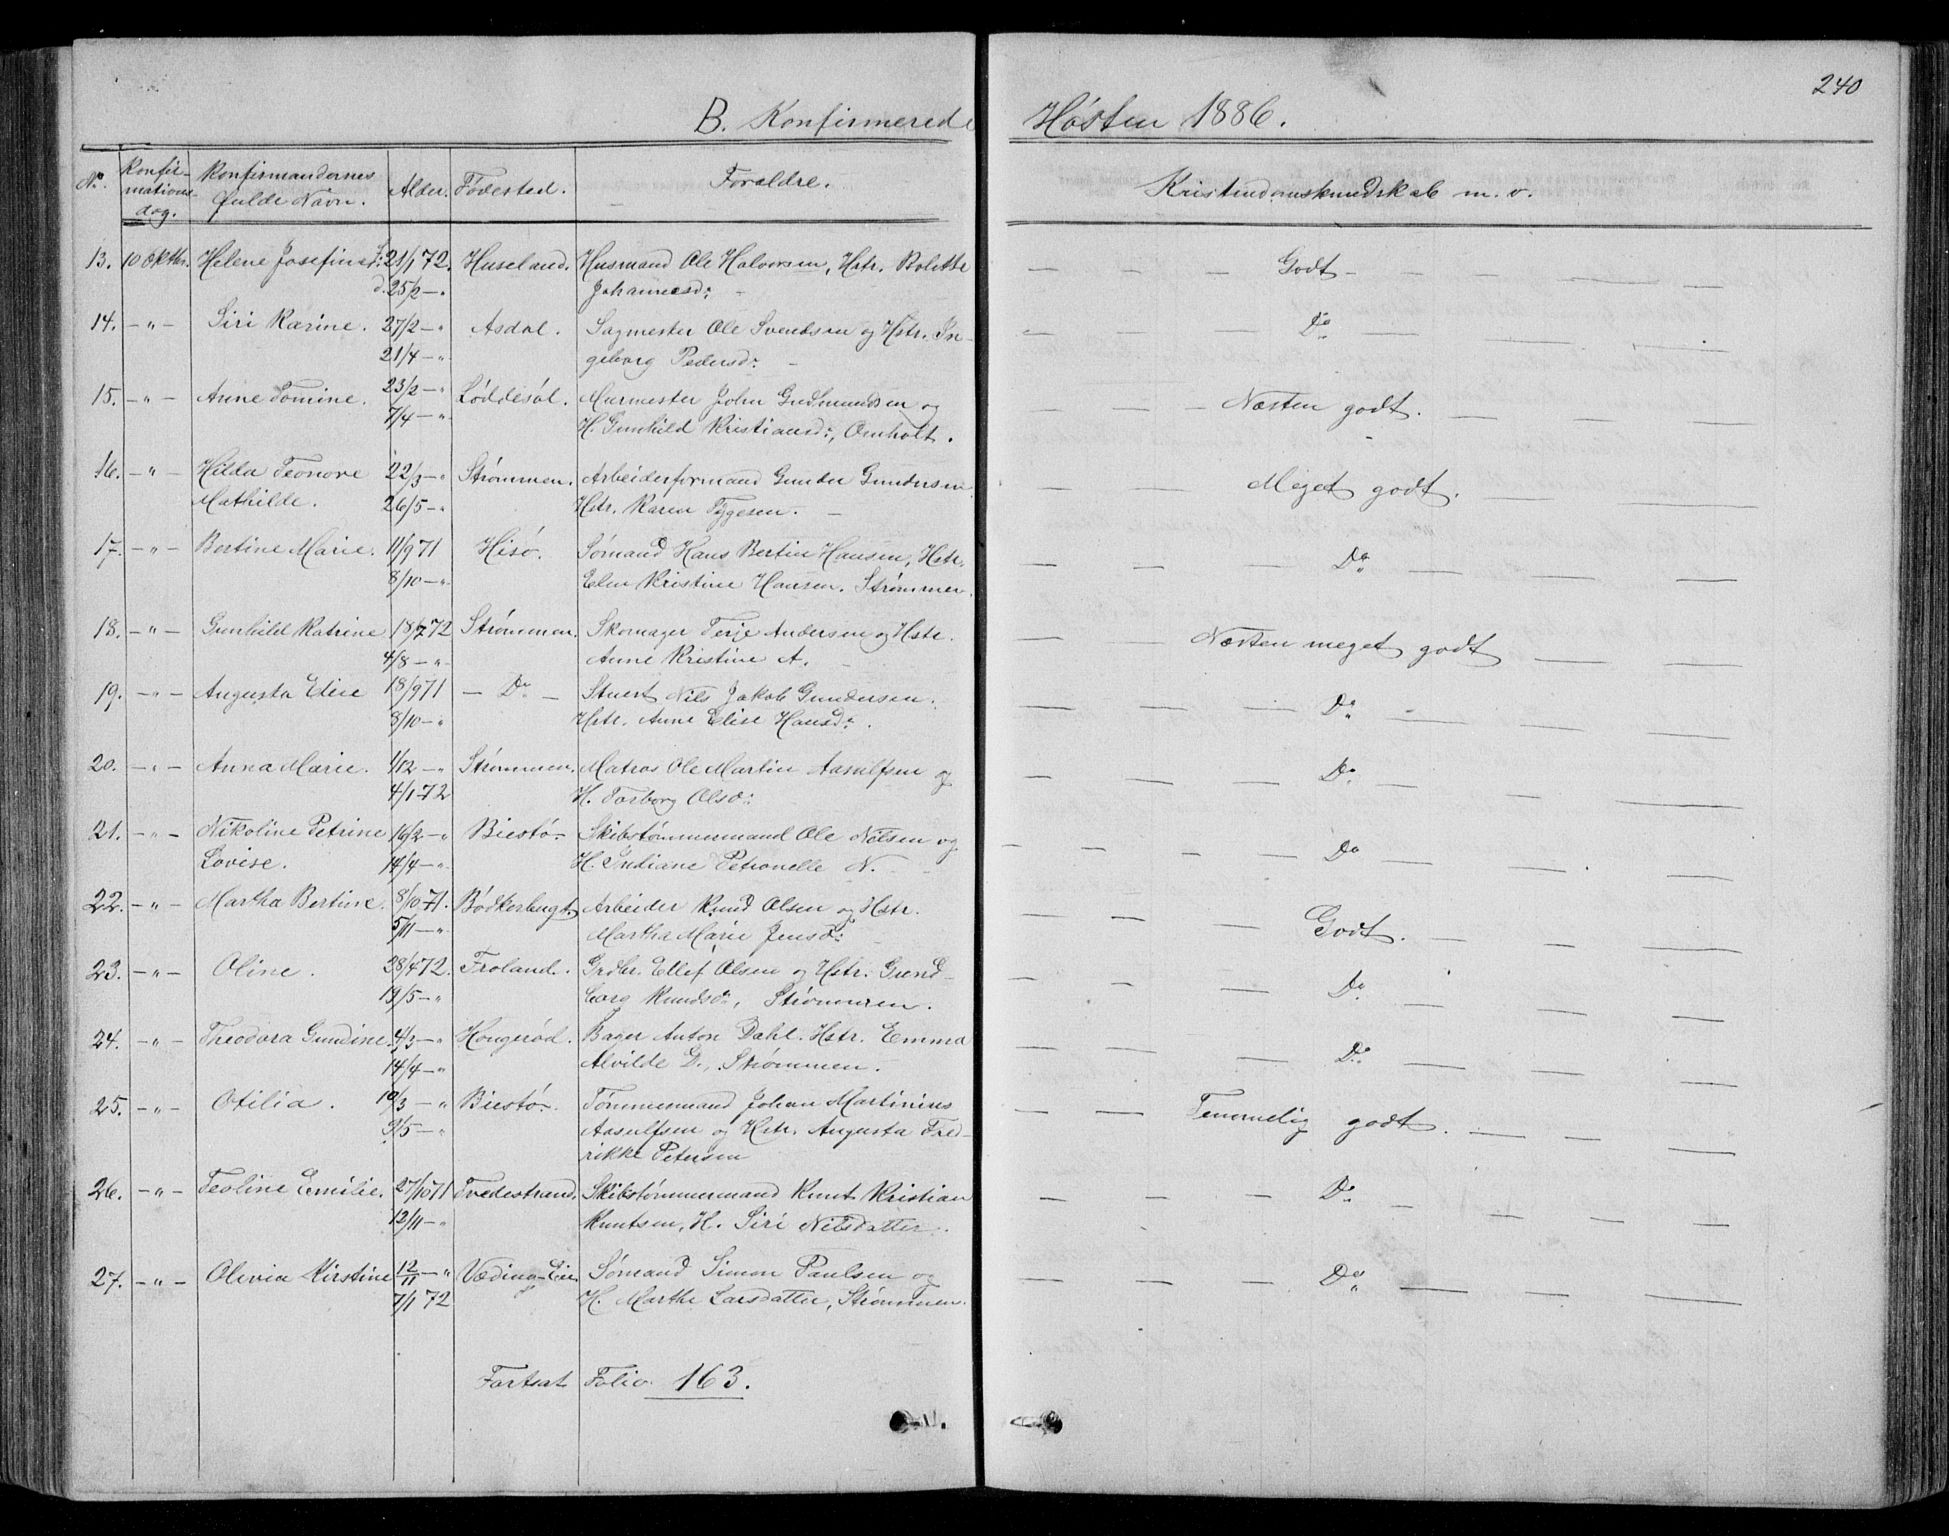 240
B. Konfirmerede Hösten 1886.
No. Konfirmationsdag. Konfirmandernes Fulde Navn. Alder. Födested. Foreldre. Kristendomskundskab m. v.
13. 10 Oktbr. Helene Josefine f. 21/1 72. Huseland. Husmand Ole Halvorsen, Hstr. Bolette — — Godt — — — —
d. 25/2 — " Johannesd:
14. — " — Siri Karine. 27/2 — " Asdal. Sagmester Ole Svendsen og Hstr. In- — — Do — —
21/4 — " geborg Pedersd:
15. — " — Anne Tomine. 23/2 — " Løddesøl. Murmester John Gudmundsen og — — — Næsten godt. — — —
7/4 — " H. Gunhild Kristiansd:, Omholt.
16. — " — Hilda Teonore 22/3 — " Strømmen. Arbeiderformand Gunder Gundersen — — Meget godt. — — —
Mathilde. 26/5 — " Hstr. Karen Tygesen.
17. — " — Bertine Marie. 11/9 71 Hisö. Sømand Hans Bertin Hansen, Hstr. — — — Do — — — —
8/10 — " Elen Kristine Hansen. Strømmen.
18. — " — Gunhild Katrine 18/7 72 Strømmen. Skomager Terje Andersen og Hstr. — — Næsten meget godt — — —
4/8 — " Anne Kristine A.
19. — " — Augusta Elise 18/9 71 — Do — Stuert Nils Jakob Gundersen. — — — Do — — — —
8/10 — " Hstr. Anne Elise Hansd:.
20. — " — Anna Marie. 1/12 — " Strømmen. Matros Ole Martin Aasulfsen og — — — Do — — —
4/1 72 H. Torborg Olsd:
21. — " — Nikoline Petrine 16/2 — " Biestö Skibstømmermand Ole Nilsen og — — — — Do — — — —
Lovise. 14/4 — " H. Indiane Petronelle N.
22. — " — Martha Bertine. 8/10 71. Bödkerbugt. Arbeider Knud Olsen og Hstr. — — — Godt. — — — —
5/11 — " Martha Marie Jensd:
23. — " — Oline. 28/4 72. Froland. Grdbr. Ellef Olsen og Hstr. Gund- — — — Do — — —
19/5 — " borg Knudsd:, Strømmen.
24. — " — Theodora Gundine. 4/3 — " Hougerød. Bager Anton Dahl. Hstr. Emma — — — Do — — — —
14/4 — " Alvilde D., Strømmen.
25. — " — Otilia. 10/3 — " Biestö. Tømmermand Johan Martinius — — Temmelig godt. — — — —
9/5 — " Aasulfsen og Hstr. Augusta Fred-
rikke Petersen
26. — " — Teoline Emilie. 27/10 71 Tvedestrand. Skibstømmermand Knut Kristian — — — Do — — — — —
12/11 — " Knutsen, H. Siri Nilsdatter.
27. — " — Olivia Kirstine 12/11 — " Vædings-Eie Sømand Simon Paulsen og — — — Do — — — —
7/1 72 H. Marthe Larsdatter, Strømmen.
Fortsat Folio 163.